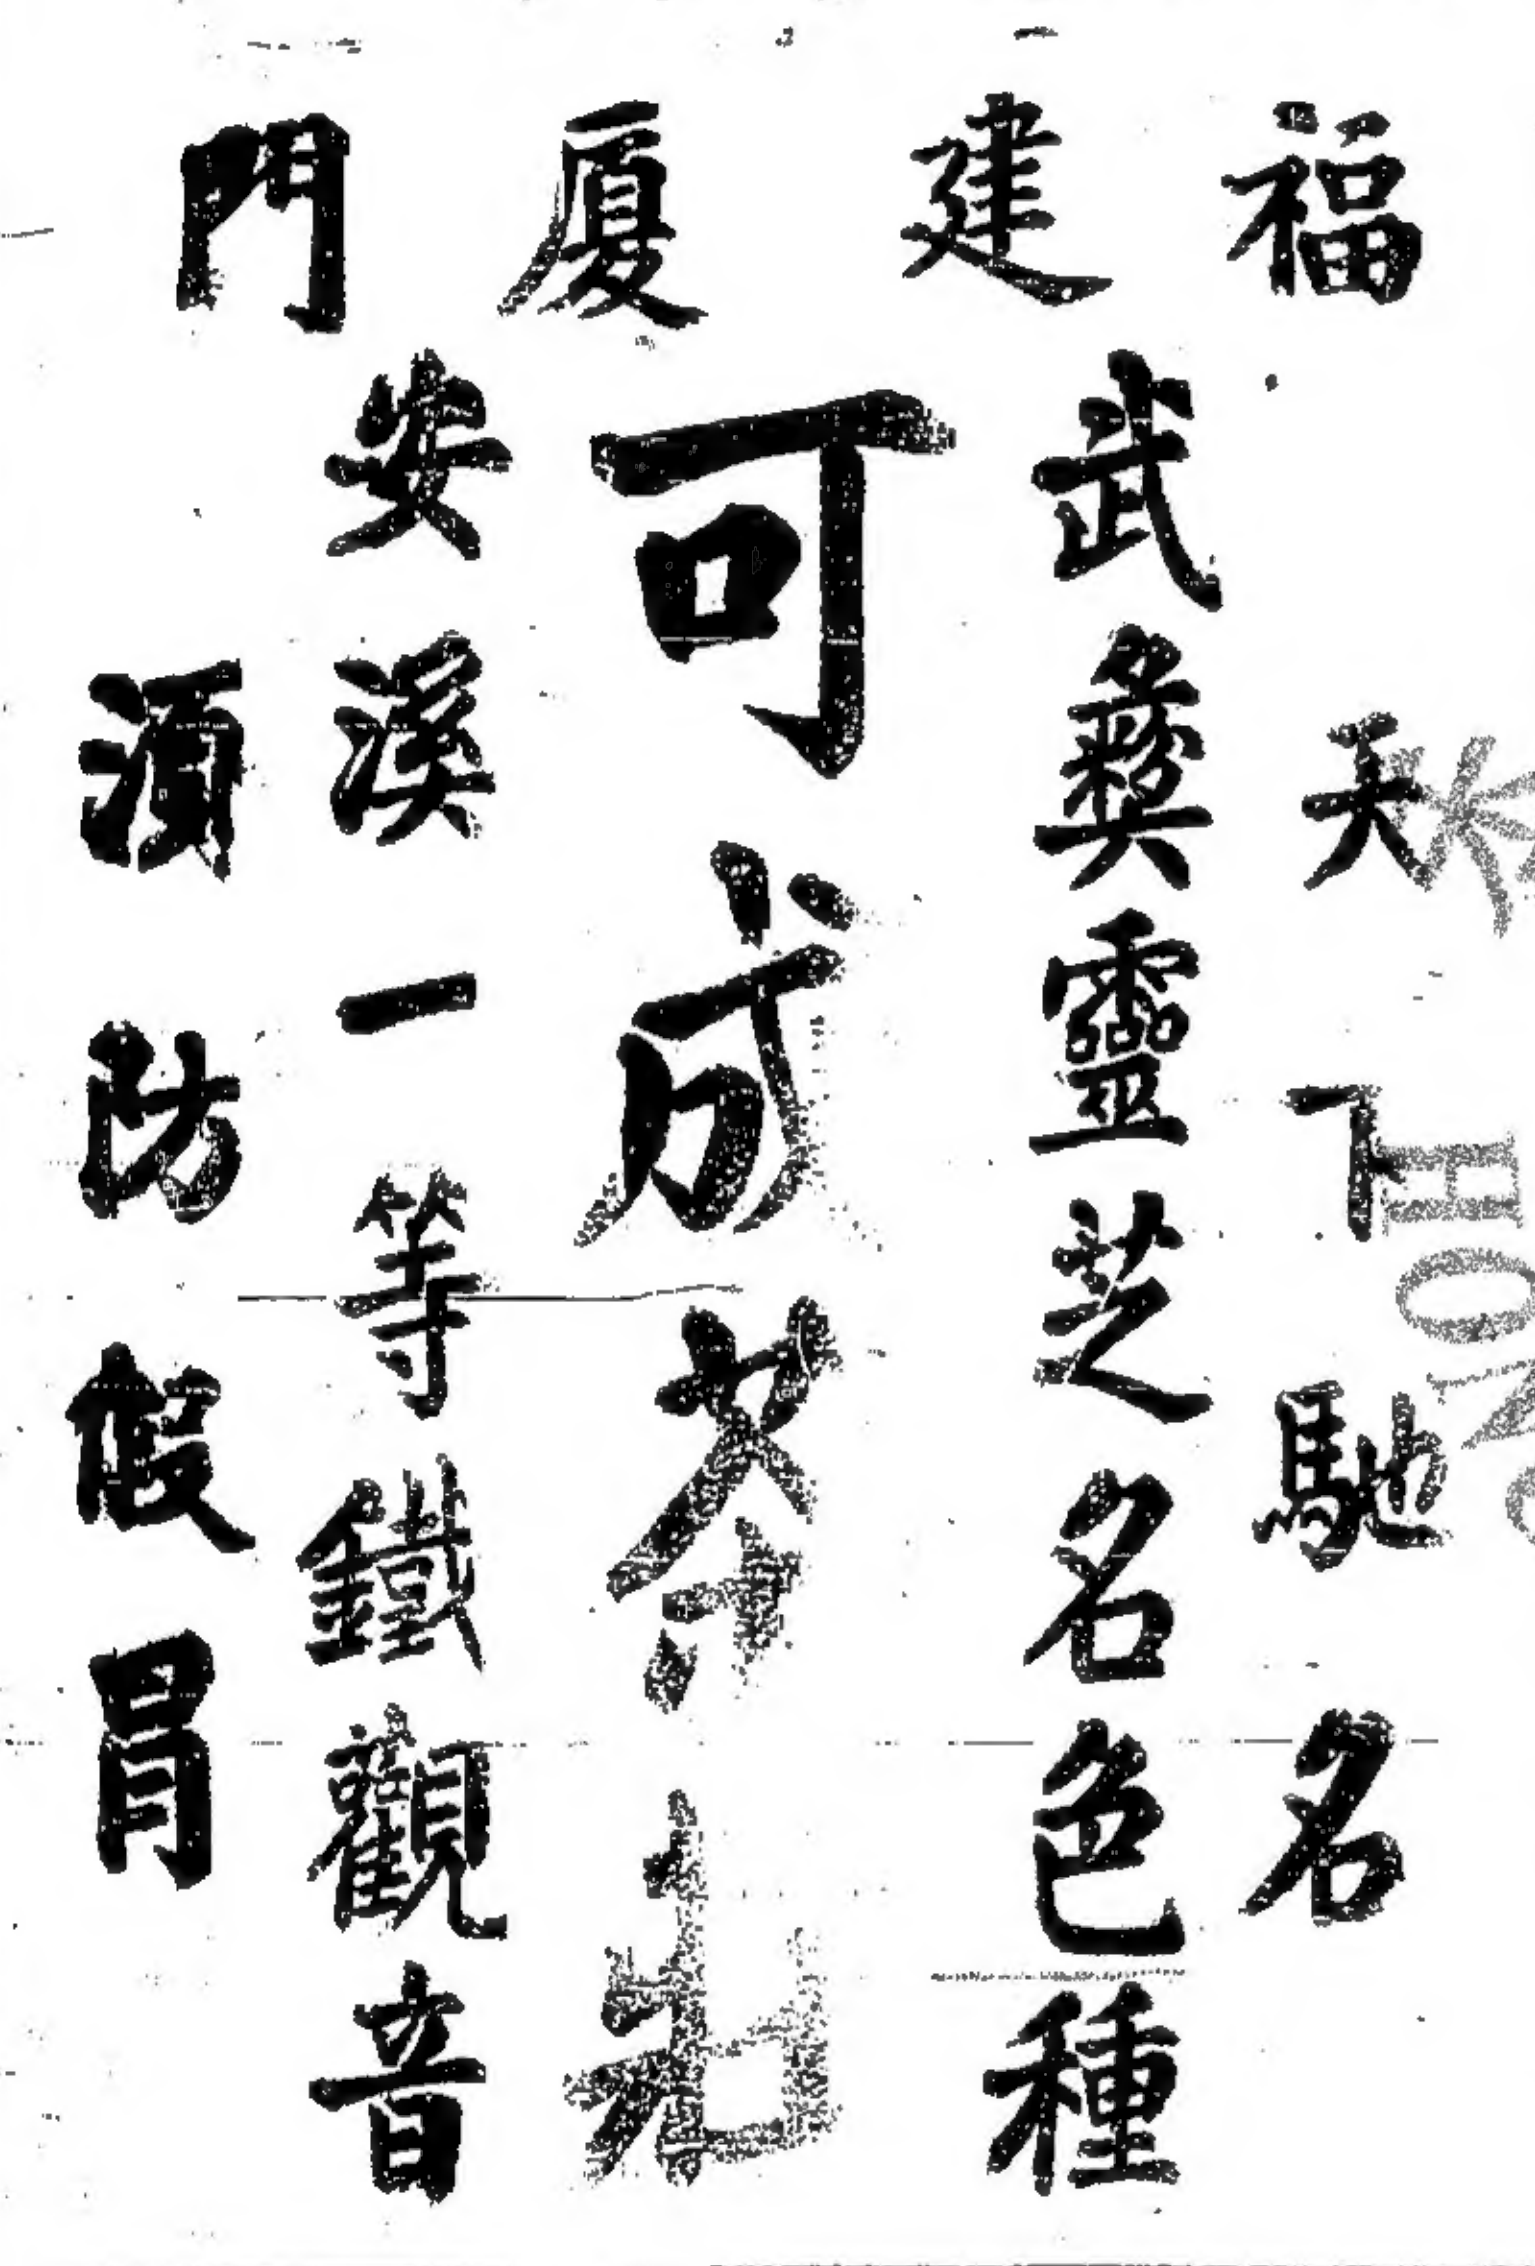 福建廈門
天下馳名
武彝靈芝名色種
可成茶
安溪一等鐵觀音
須防假冒